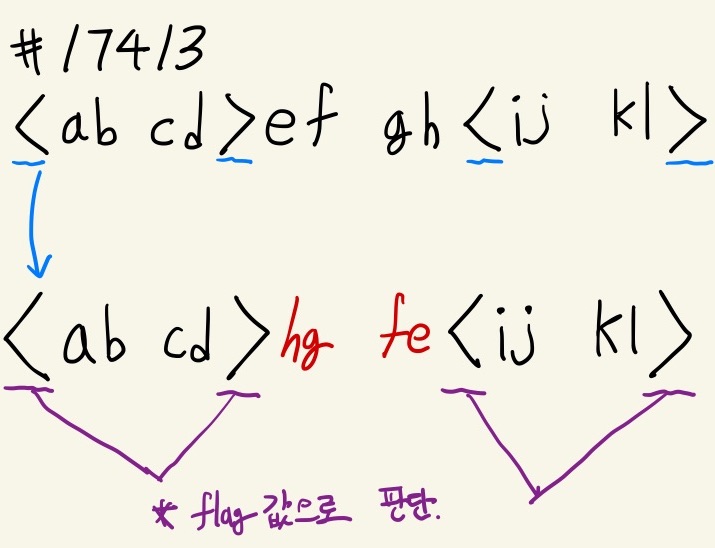 #17413
<ab cd>ef gh<ij kl>
<ab cd>hg fe<ij kl>
* flag 값으로 판단.